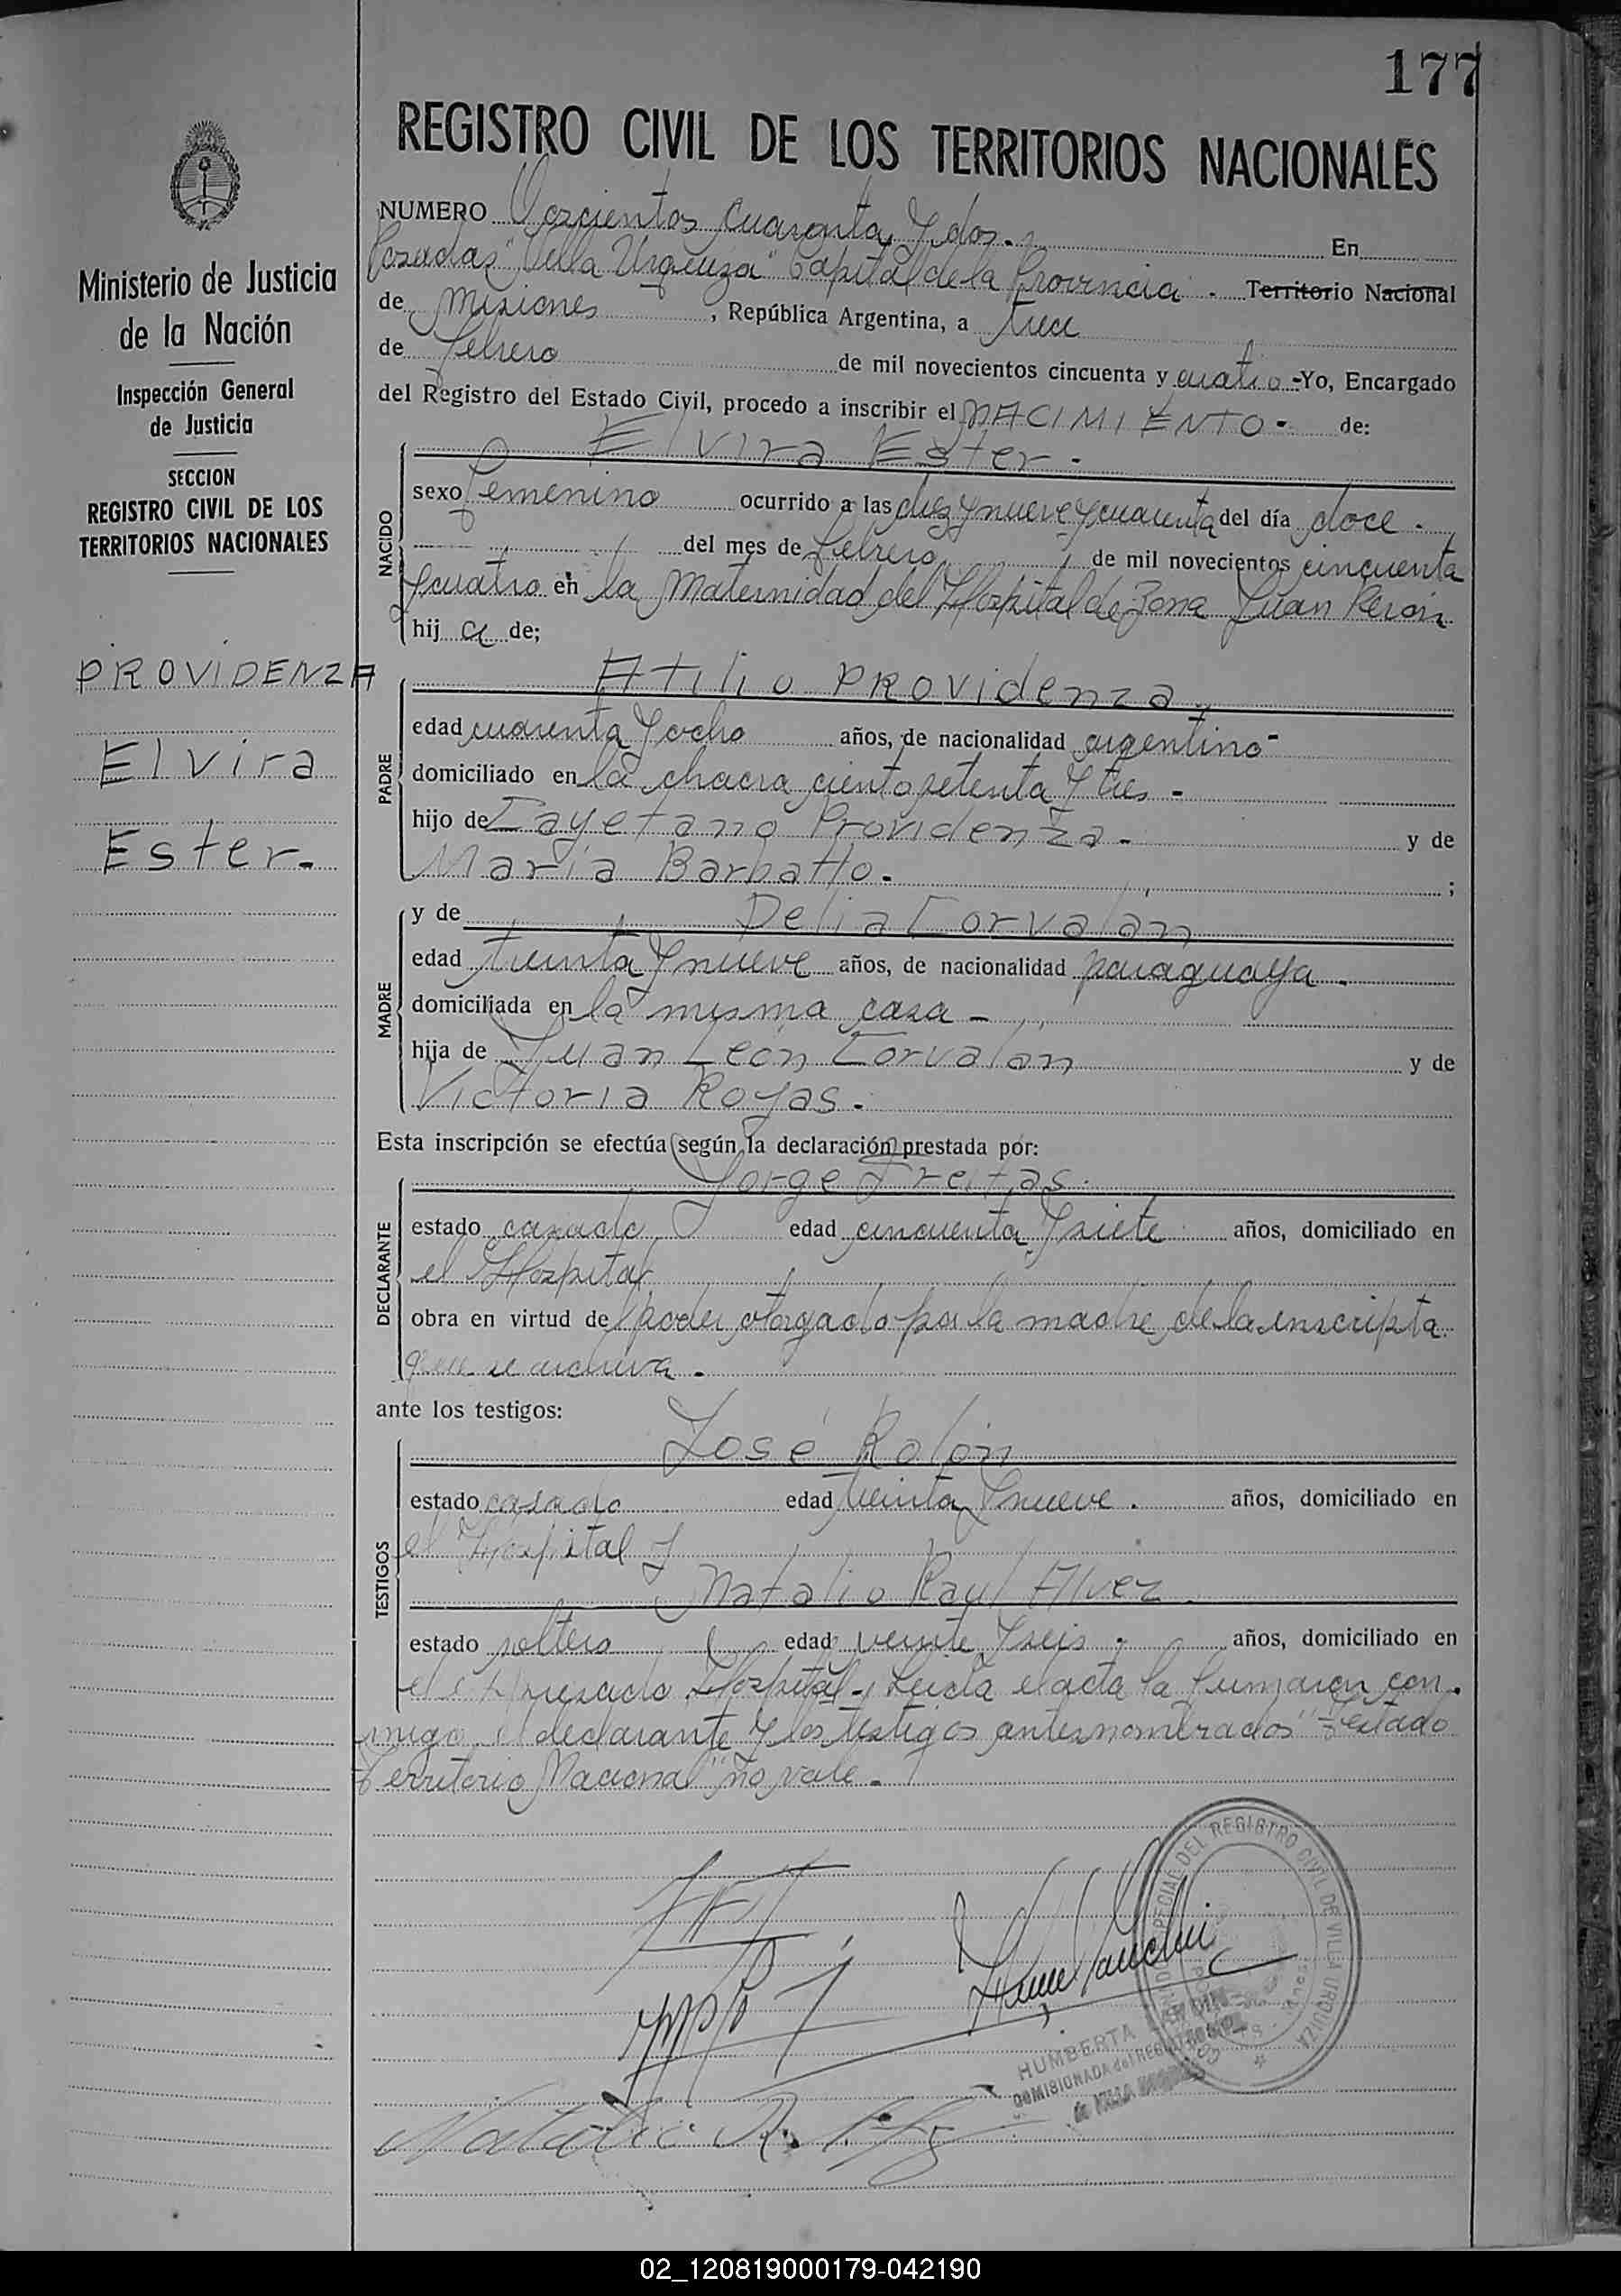 177
REGISTRO CIVIL DE LOS TERRITORIOS NACIONALES
Ministerio de Justicia
de la Nación
Inspección General
de Justicia
SECCION
REGISTRO CIVIL DE LOS
TERRITORIOS NACIONALES
PROVIDENZA
Elvira
Ester.
NUMERO Doscientos cuarenta y dos. En
Posadas "Villa Urquiza" Capital de la Provincia. Territorio Nacional
de Misiones, República Argentina, a trece
de febrero de mil novecientos cincuenta y cuatro -Yo, Encargado
del Registro del Estado Civil, procedo a inscribir el NACIMIENTO- de:
NACIDO
Elvira Ester.
sexo femenino ocurrido a las diez y nueve y cuarenta del día doce.
del mes de febrero de mil novecientos cincuenta
y cuatro en la Maternidad del Hospital de Zona Juan Perón
hija de;
PADRE
Atilio PROVIdenza
edad cuarenta y ocho años, de nacionalidad argentino-
domiciliado en la chacra ciento setenta y tres -
hijo de Cayetano Providenza. y de
María Barbatto. ;
MADRE
y de Delia Corvalán
edad treinta y nueve años, de nacionalidad paraguaya.
domiciliada en la misma casa -
hija de Juan León Corvalan y de
Victoria Royas.
Esta inscripción se efectúa según la declaración prestada por:
DECLARANTE
Jorge Freitas.
estado casado edad cincuenta y siete años, domiciliado en
el Hospital
obra en virtud de poder otorgado por la madre de la inscripta
que se archiva.
ante los testigos:
TESTIGOS
José Rolón
estado casado edad treinta y nueve. años, domiciliado en
el Hospital y
Natalio Raul Alvez
estado soltero edad veinte y seis. años, domiciliado en
el expresado Hospital - Leida el acta la firmaron con-
migo, el declarante y los testigos antes nombrados "Testado
Territorio Nacional" no vale.
DEL REGISTRO CIVIL DE VILLA URQUIZA
HUMBERTA
COMISIONADA del REGISTRO
de VILLA
Natalio R.
02_120819000179-042190